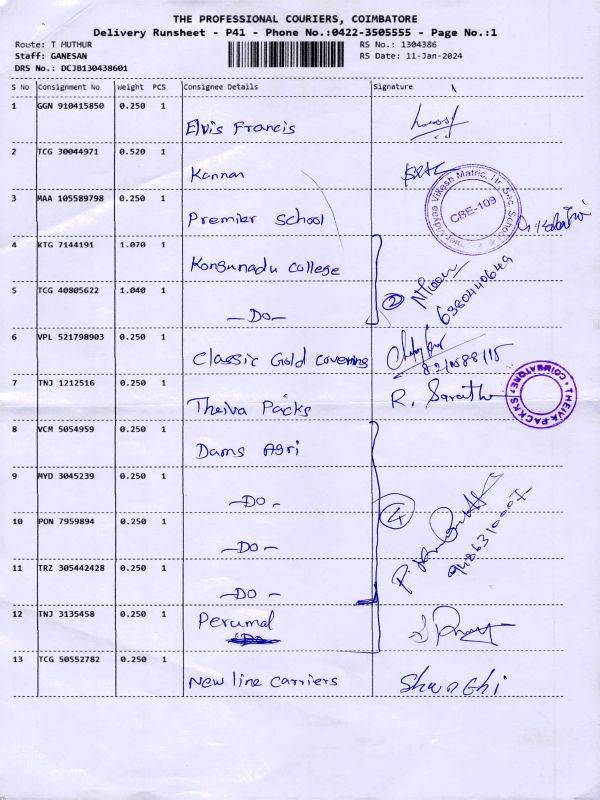 THE PROFESSIONAL COURIERS, COIMBATORE
Delivery Runsheet - P41 - Phone No.:0422-3505555 - Page No.:1
Route: T MUTHUR
RS No.: 1304386
Staff: GANESAN
RS Date: 11-Jan-2024
DRS No.: DCJB130438601
S No Consignment No Weight PCS Consignee Details Signature
1 GGN 910415850 0.250 1 Elvis Francis
2 TCG 30044971 0.520 1 Kannan
3 MAA 105589798 0.250 1 Premier School
Vidyaa Vikash Matric. Hr. Sec. School
CBE-109
4 KTG 7144191 1.070 1 Kongunadu college
5 TCG 40805622 1.040 1 —Do— 2
6 VPL 521798903 0.250 1 Classic Gold covering
7 TNJ 1212516 0.250 1 Theiva Packs R. Sarath
THEIVA PACKS COIMBATORE
8 VCM 5054959 0.250 1 Dams Agri
9 MYD 3045239 0.250 1 —Do— 4
10 PON 7959894 0.250 1 —Do—
11 TRZ 305442428 0.250 1 —Do—
12 TNJ 3135458 0.250 1 Perumal
13 TCG 50552782 0.250 1 New line carriers